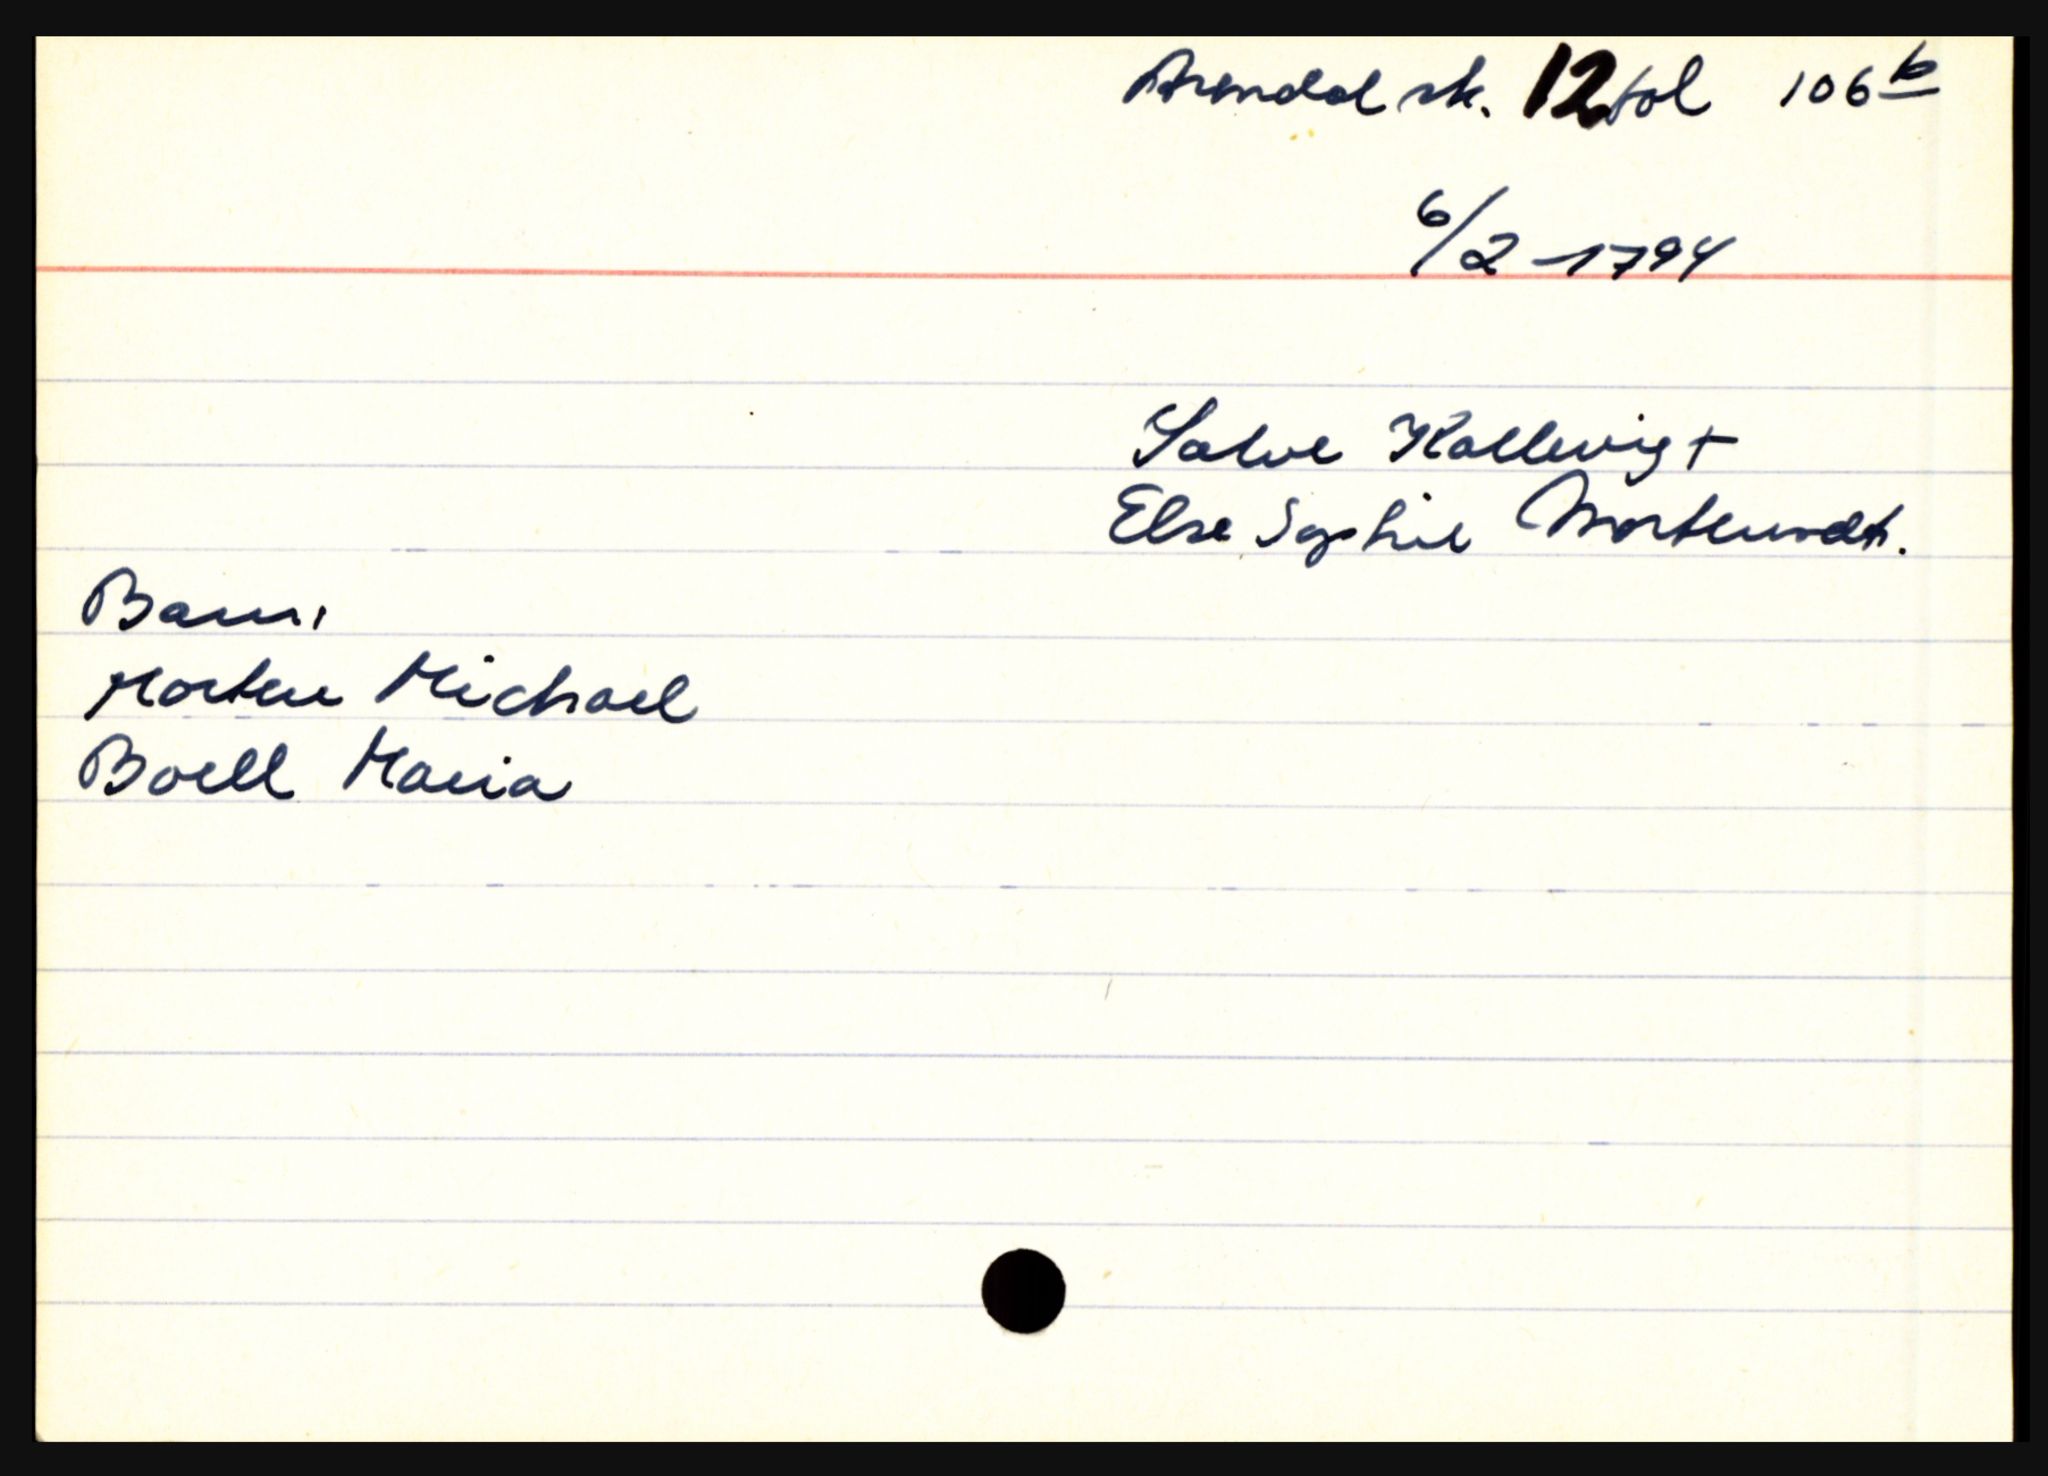 Arendal sk. 12 fol 106 b
6/2 - 1794
Salve Kallevig +
Else Sophie Mortensdt.
Barn:
Morten Michael
Boell Maria